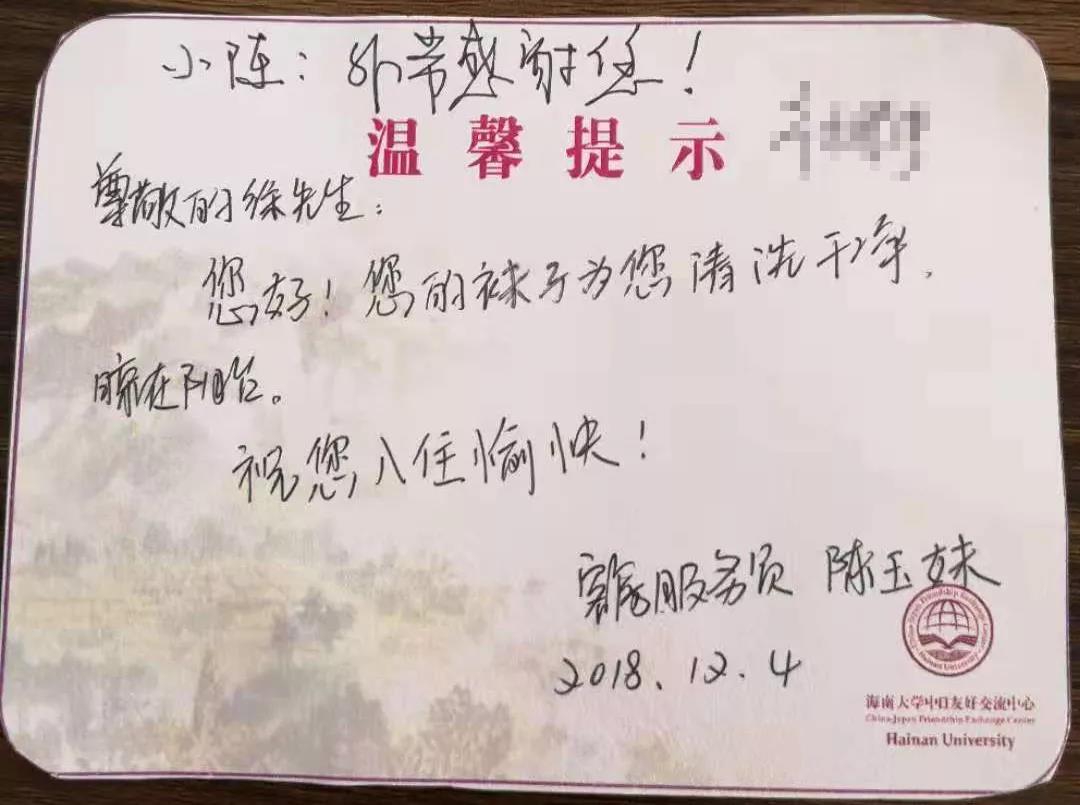 小陈：非常感谢您！
温馨提示
尊敬的徐先生：
您好！您的袜子为您清洗干净，
晾在阳台。
祝您入住愉快！
客房服务员 陈玉妹
2018.12.4
海南大学中日友好交流中心
China-Japan Friendship Exchange Center
Hainan University